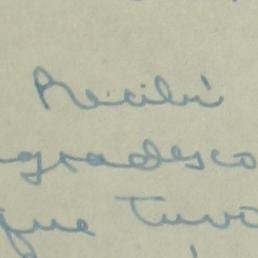 Recibí
agradesco
que tuvo